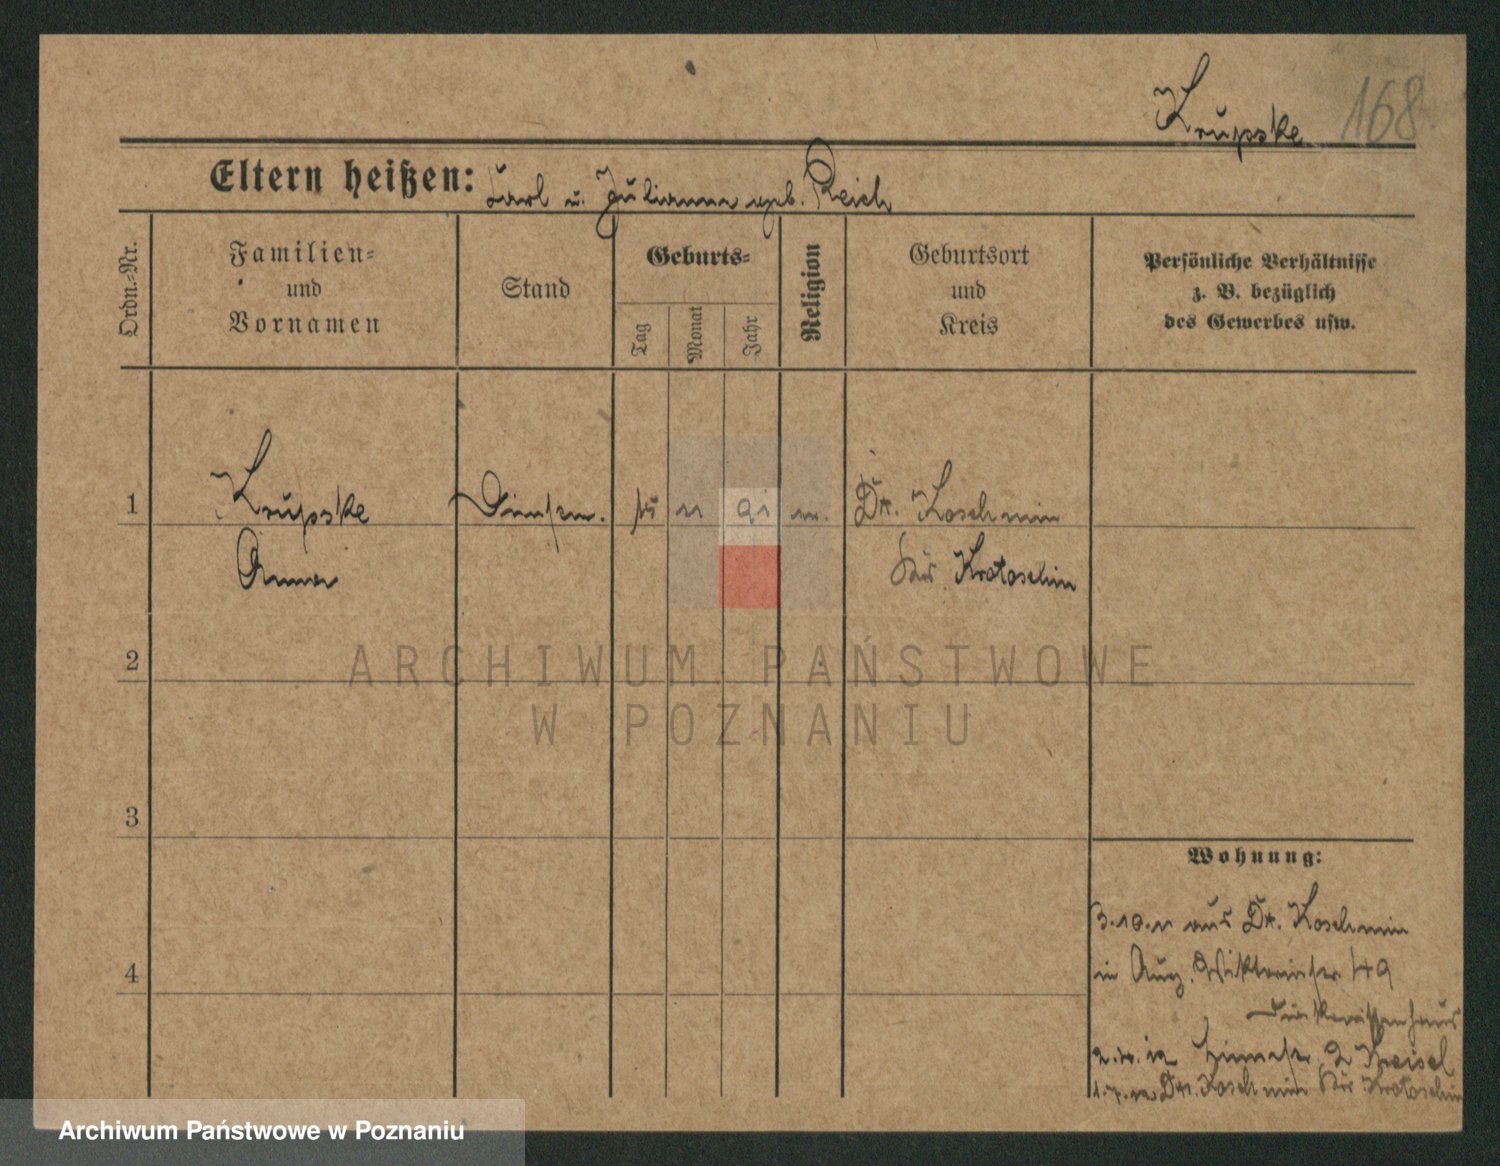 168
Krupske
Eltern heißen: Carl u. Julianna geb. Reich
Ordn.-Nr.
Familien-
und
Vornamen
Stand
Geburts-
Tag
Monat
Jahr
Religion
Geburtsort
und
Kreis
Persönliche Verhältnisse
z. B. bezüglich
des Gewerbes usw.
1
Krupske
11
91
Dt. Koschmin
Anna
Krotoschin
2
ARCHIWUM PAŃSTWOWE
W POZNANIU
3
Wohnung:
3.10.11 aus Dt. Koschmin
4
in Aug. Viktoriastr 49
Diakonissenhaus
2 Kreisel
Dt. Koschmin Krotoschin
Archiwum Państwowe w Poznaniu